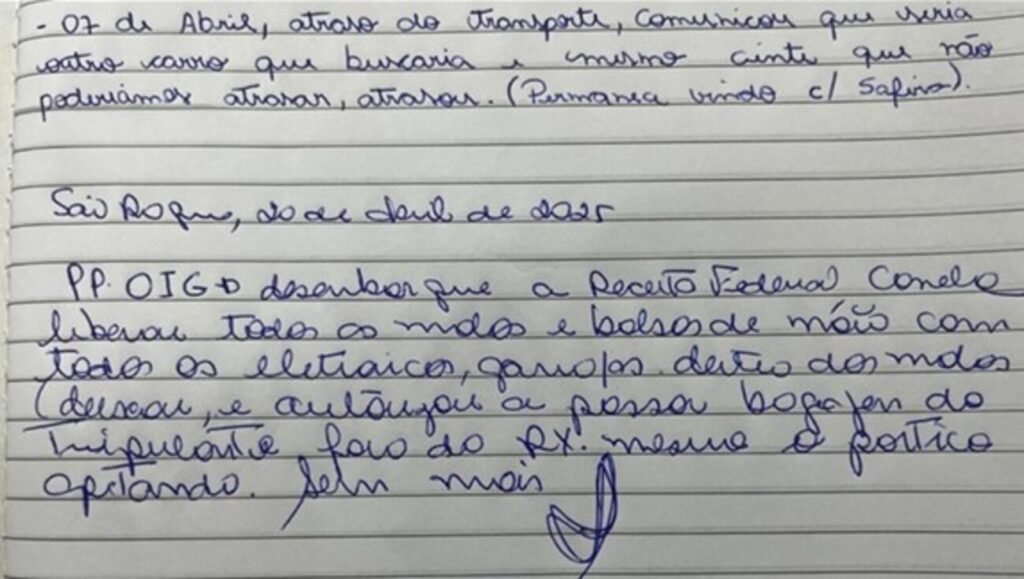 - 07 de Abril, atraso do transporte, comunicou que seria
outro carro que buscaria e mesmo ciente que não
poderiamos atrasar, atrasou. (Permanca vindo c/ Safira).
São Roque, 20 de Abril de 2025
PP. OIG+ desembarque a Receita Federal Canelo
liberou todos as malas e bolsas de mão com
todos os eletraicos, garrafas dentro das malas
(deixou, e autorizou a passar bagagem do
tripulante fora do RX. mesmo o portico
apitando. Sem mais